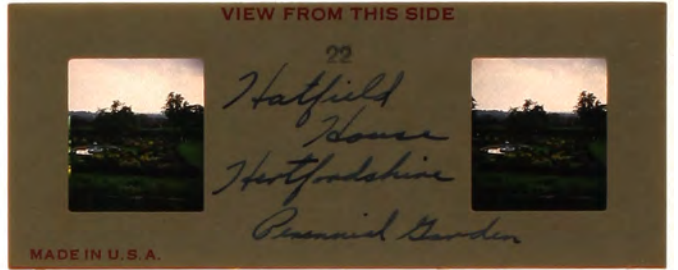 VIEW FROM THIS SIDE
22
Hatfield
House
Hertfordshire
Perennial Garden
MADE IN U.S.A.